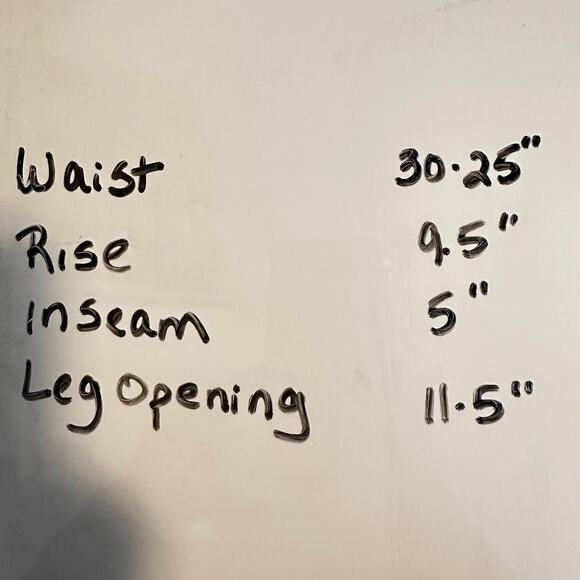 Waist 30.25"
Rise 9.5"
Inseam 5"
Leg Opening 11.5"